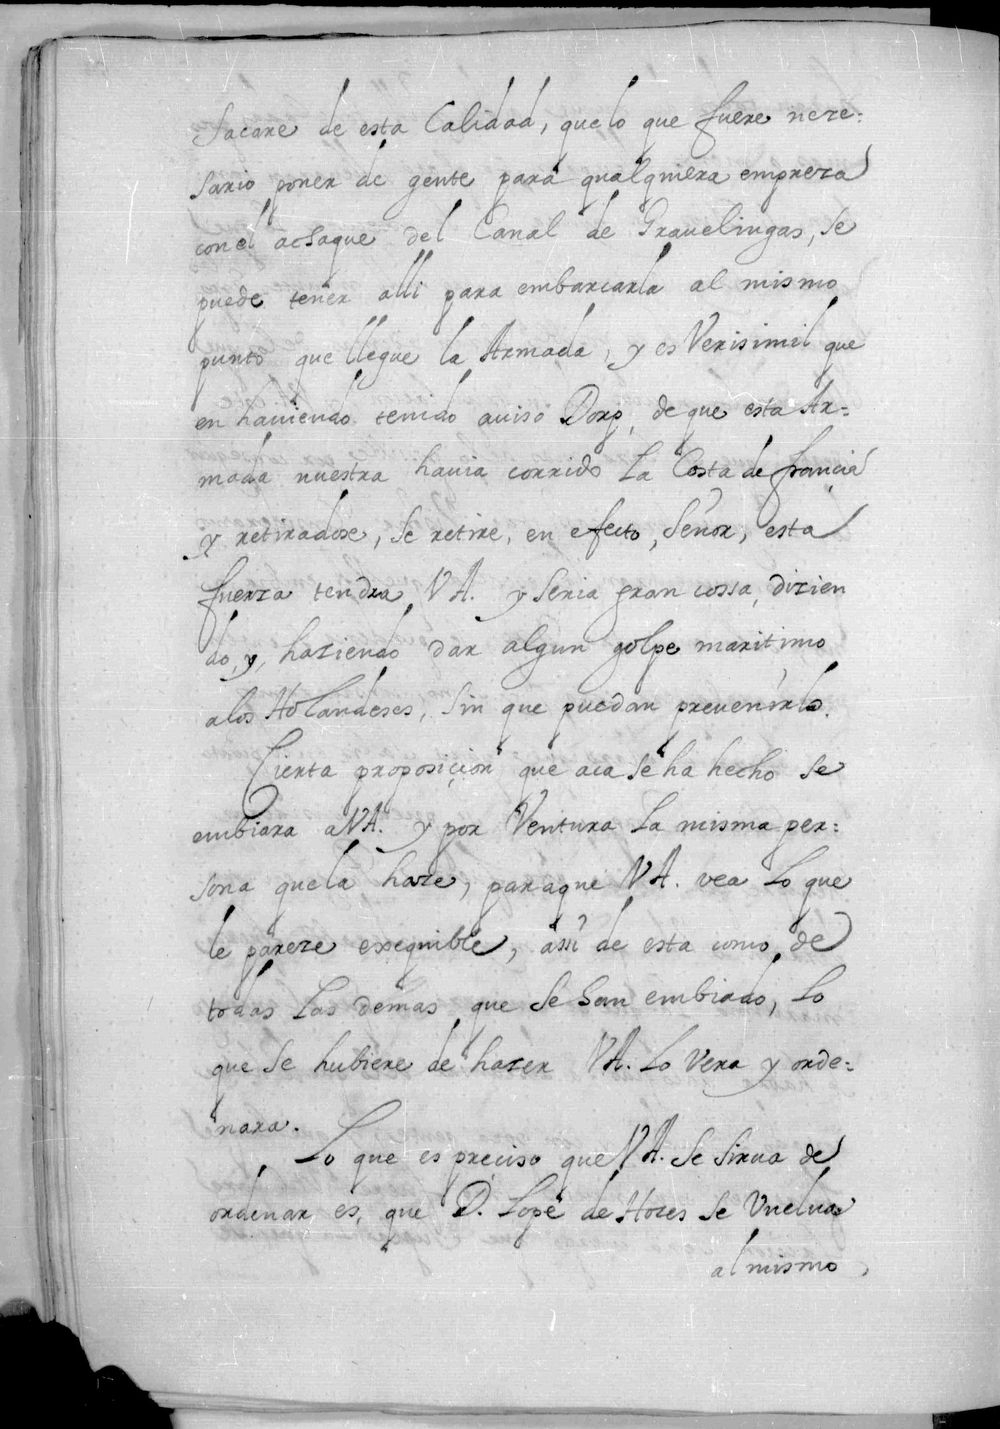 sacare de esta Calidad, quelo que fuere neze=
sario poner de gente para qualquiera empreza
conel achaque del Canal de Grauelingas, se
puede tener alli para embarcarla al mismo
punto que llegue la Armada, y es Verisimil que
en hauiendo tenido auiso Dorp, de que esta Ar=
mada nuestra hauia corrido La Costa de francia
y retiradose, se retire, en efecto, Señor, esta
fuerza tendra VA. y seria gran cossa, dizien
do, y, haziendo dar algun golpe maritimo
alos Holandeses, sin que puedan preuenirlo.
Cierta proposiçion que aca se ha hecho se
embiara aVA. y por Ventura La misma per=
sona quela haze, paraque VA. vea Lo que
le pareze exequible, assi de esta como de
todas Las demas que se han embiado, Lo
que se hubiere de hazer VA. Lo Vera y orde=
nara.
Lo que es preçiso que VA. se sirua de
ordenar es, que D. Lope de Hozes se Vuelua
al mismo